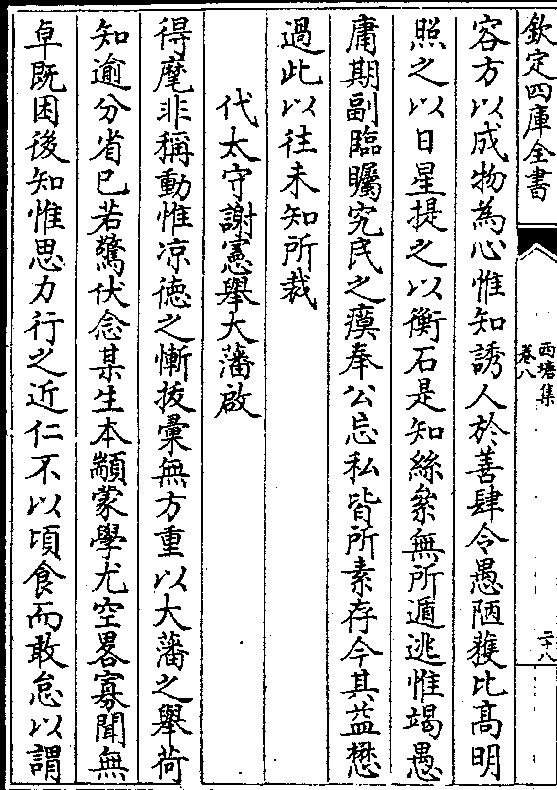 欽定四庫全書
西塘集
卷八
二十八
容方以成物為心惟知誘人於善肆令愚陋獲比高明
照之以日星提之以衡石是知絲絫無所遁逃惟竭愚
庸期副臨矚究民之瘼奉公忘私皆所素存今其益懋
過此以往未知所裁
代太守謝憲舉大藩啟
得麾非稱動惟凉徳之慚拔彚無方重以大藩之舉荷
知逾分省已若驚伏念某生本顓蒙學尤空畧寡聞無
卓既困後知惟思力行之近仁不以頃食而敢怠以謂